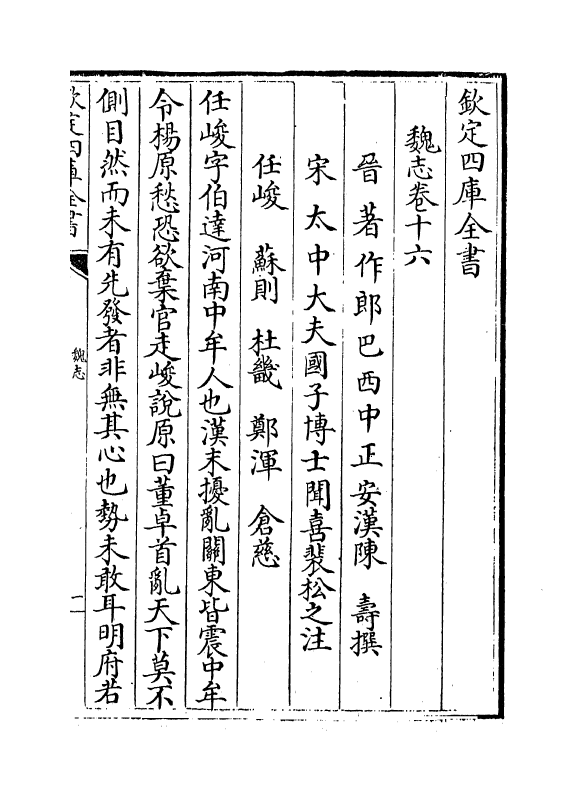 欽定四庫全書
魏志卷十六
晉著作郎巴西中正安漢陳壽撰
宋太中大夫國子博士聞喜裴松之注
任峻 蘇則 杜畿 鄭渾 倉慈
任峻字伯達河南中牟人也漢末擾亂關東皆震中牟
令楊原愁恐欲棄官走峻說原曰董卓首亂天下莫不
側目然而未有先發者非無其心也勢未敢耳明府若
欽定四庫全書
魏志
一